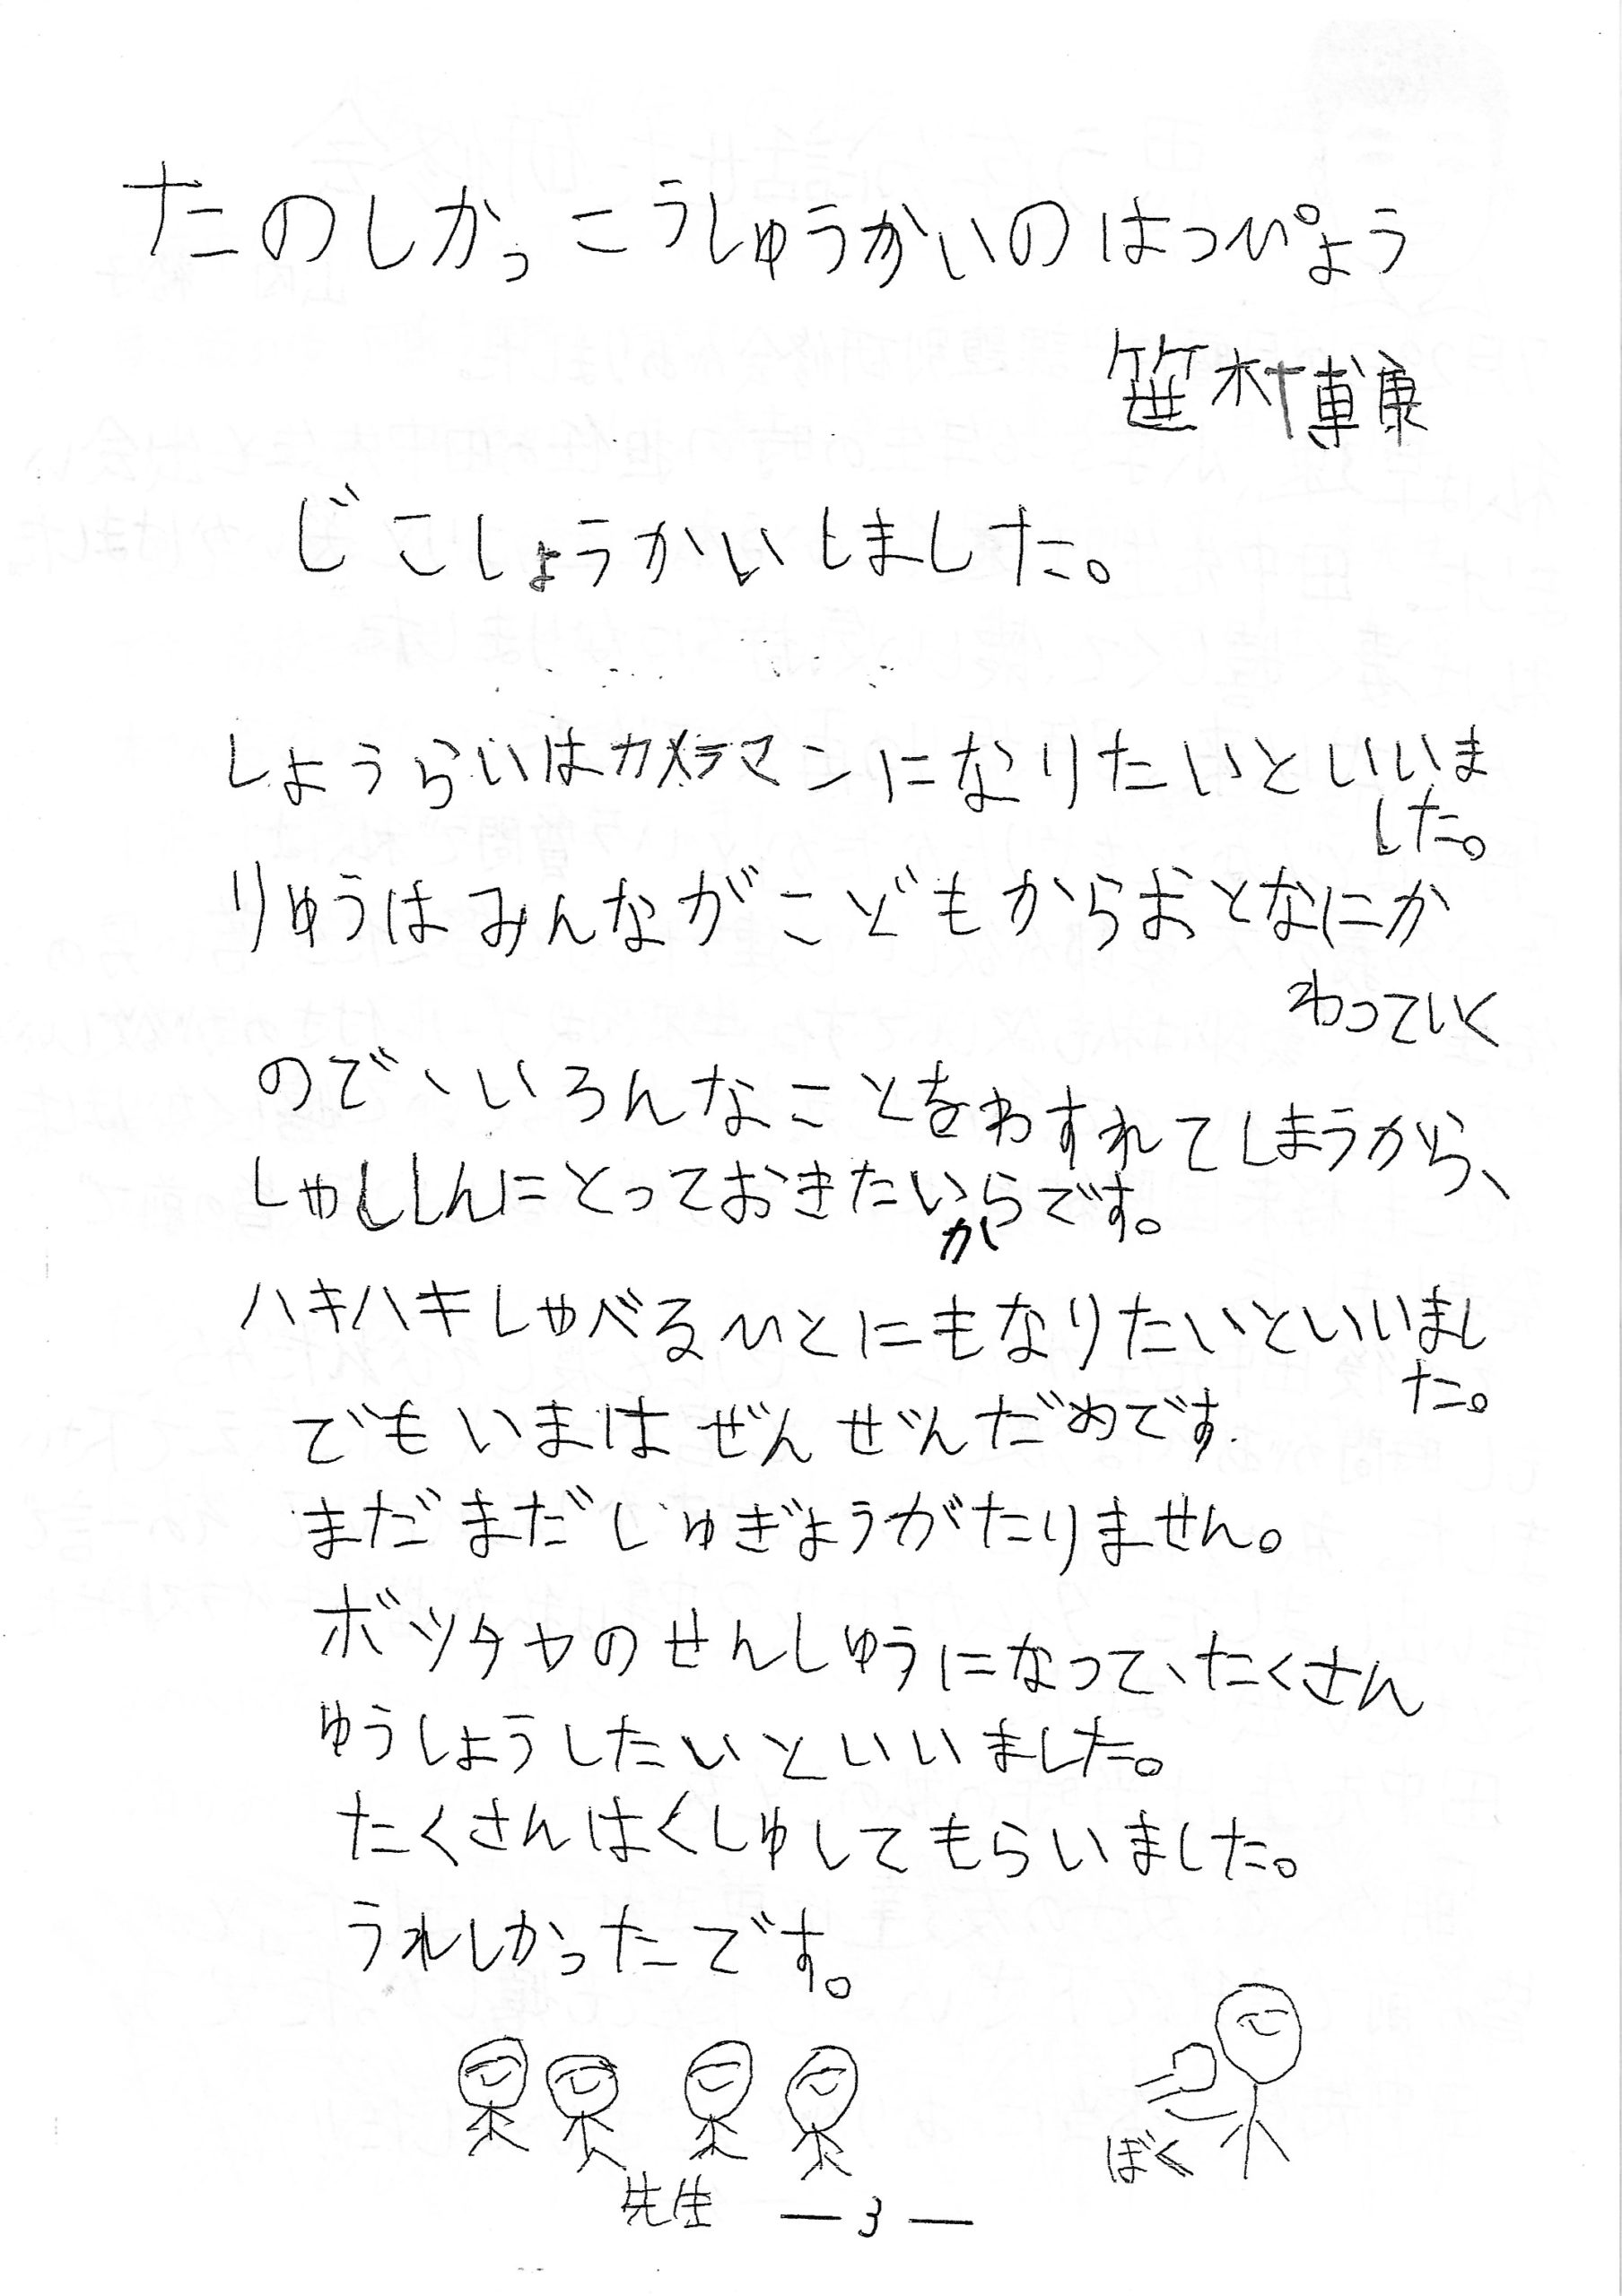 たのしかっこうしゅうかいのはっぴょう
笹村博康
じこしょうかいしました。
しょうらいはカメラマンになりたいといいま
した。
りゅうはみんながこどもからおとなにか
わっていく
ので、いろんなことをわすれてしまうから、
しゃししんにとっておきたいからです。
ハキハキしゃべるひとにもなりたいといいまし
た。
でもいまはぜんぜんだめです.
まだまだじゅぎょうがたりません。
ボツチャのせんしゅうになって、たくさん
ゆうしょうしたいといいました。
たくさんはくしゅしてもらいました。
うれしかったです。
ぼく
先生
—3—